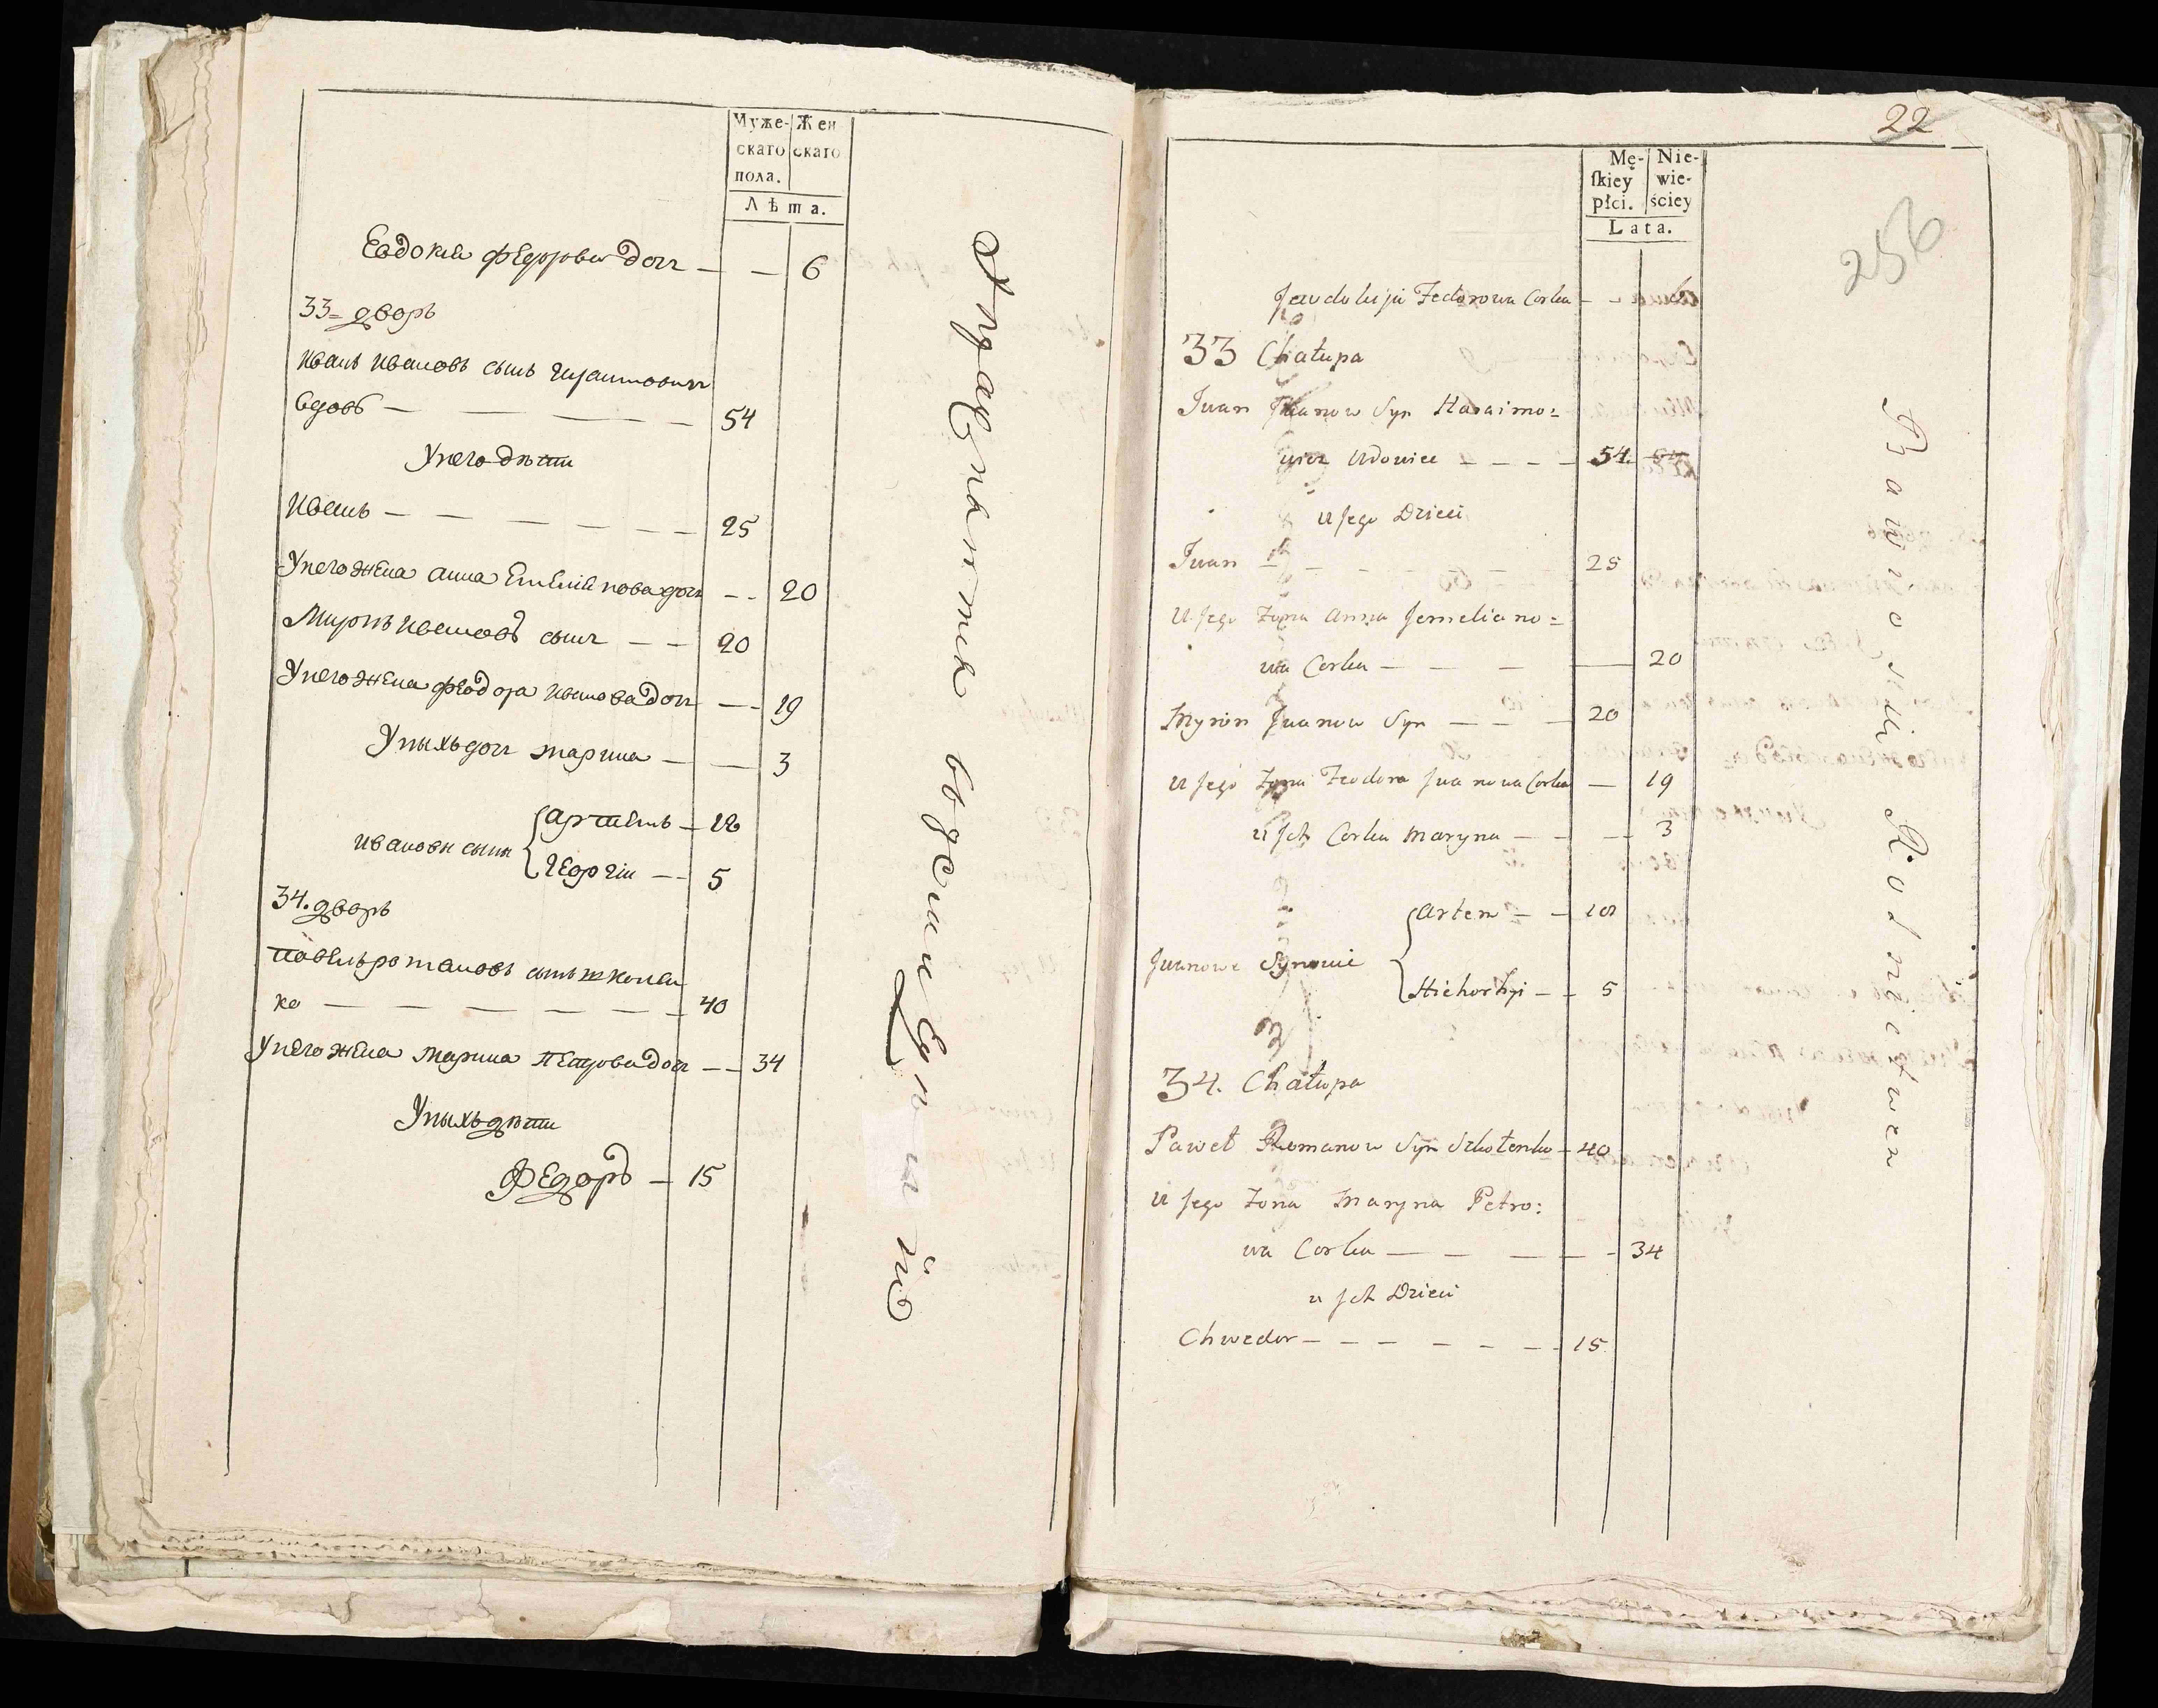 Муже- Жен
скаго скаго
пола.
Лѣта.
Евдокія Федорова дочь — — 6
33 = дворъ
Иванъ Ивановъ сынъ
вдовъ — — — — — 54
У него дѣти
Иванъ — — — — — — 25
У него жена Анна Емеліанова дочь — - 20
Миронъ Ивановъ сынъ — — 20
У него жена Феодора Иванова дочь — - 19
У ныхъ дочь Марина — — 3
Артемъ — 10
Ивановы сыны
Георгіи — - 5
34. дворъ
Павелъ Романовъ сынъ
ко — — — — — — — 40
У него жена Марина Петрова дочь — — 34
У ныхъ дѣти
Федоръ — 15
22
256
Mę- Nie-
ſkiey wie-
płci. ściey
Lata.
Jewdokija Fedorowa Corka - -
33 Chałupa
Iwan Iwanow Syn Haraimo=
wicz Wdowiec - - - - 54.
u Jego Dzieci
Iwan — — — — — 25
u Jego Żona Anna Jemeliano=
wa Corka — — — — 20
Myron Iwanow Syn — — — 20
u Jego Żona Feodora Iwanowa Corka — 19
u Jch Corka Maryna — — — 3
Artem — — 10
Iwanowe Synowie
Hichorhyi — - 5
34. Chałupa
Paweł Romanow Syn Szkołenko — 40
u Jego Żona Maryna Petro:
wa Corka — — — — - 34
u Jch Dzieci
Chwedor — — — — — — - 15